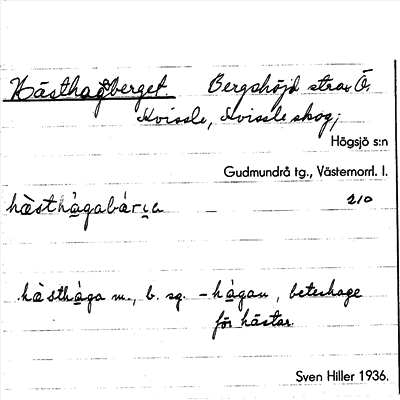 Hästhagberget. Bergshöjd strax Ö.
Kvissle, Kvissle skog;
Högsjö s:n
Gudmundrå tg., Västernorrl. l.
hästhàgabárɩ̯a — 210
hàsthàga m., b. sg. -hàgan, beteshage
för hästar.
Sven Hiller 1936.